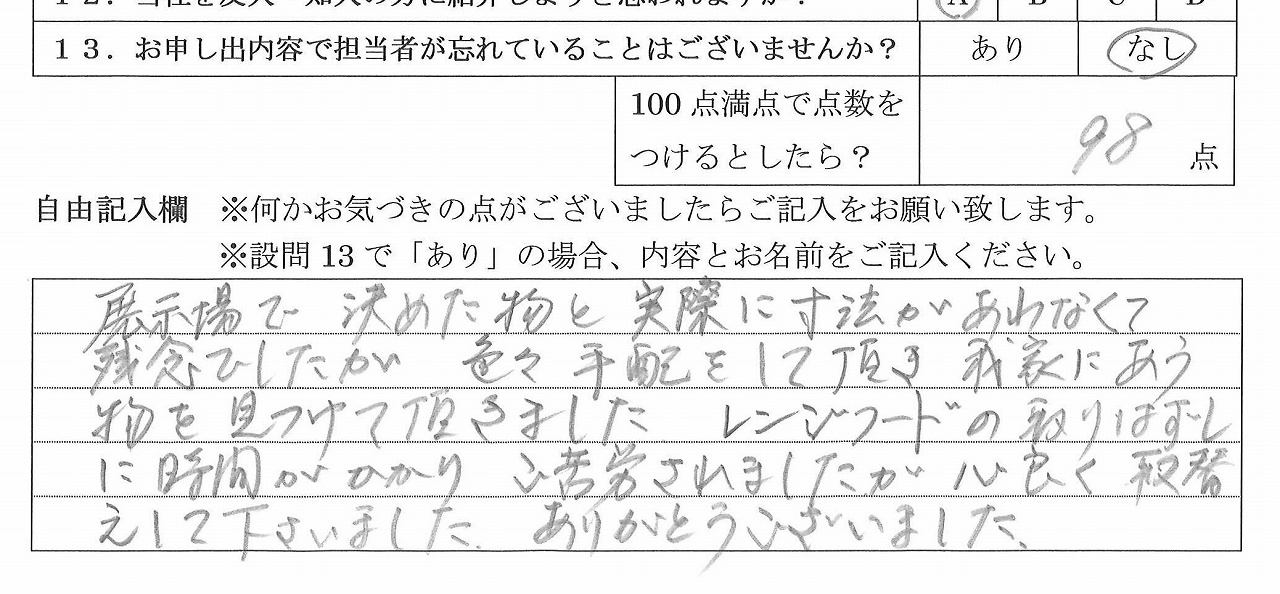 １２．当社を友人・知人の方に紹介しようと思われますか？ A B C D
１３．お申し出内容で担当者が忘れていることはございませんか？ あり なし
100 点満点で点数を
つけるとしたら？ 98 点
自由記入欄 ※何かお気づきの点がございましたらご記入をお願い致します。
※設問 13 で「あり」の場合、内容とお名前をご記入ください。
展示場で 決めた物と 実際に寸法があわなくて
残念でしたが 色々 手配をして頂き 我家にあう
物を見つけて頂きました レンジフードの取りはずし
に時間がかかり ご苦労されましたが 心良く 取替
えして下さいました。 ありがとうございました。